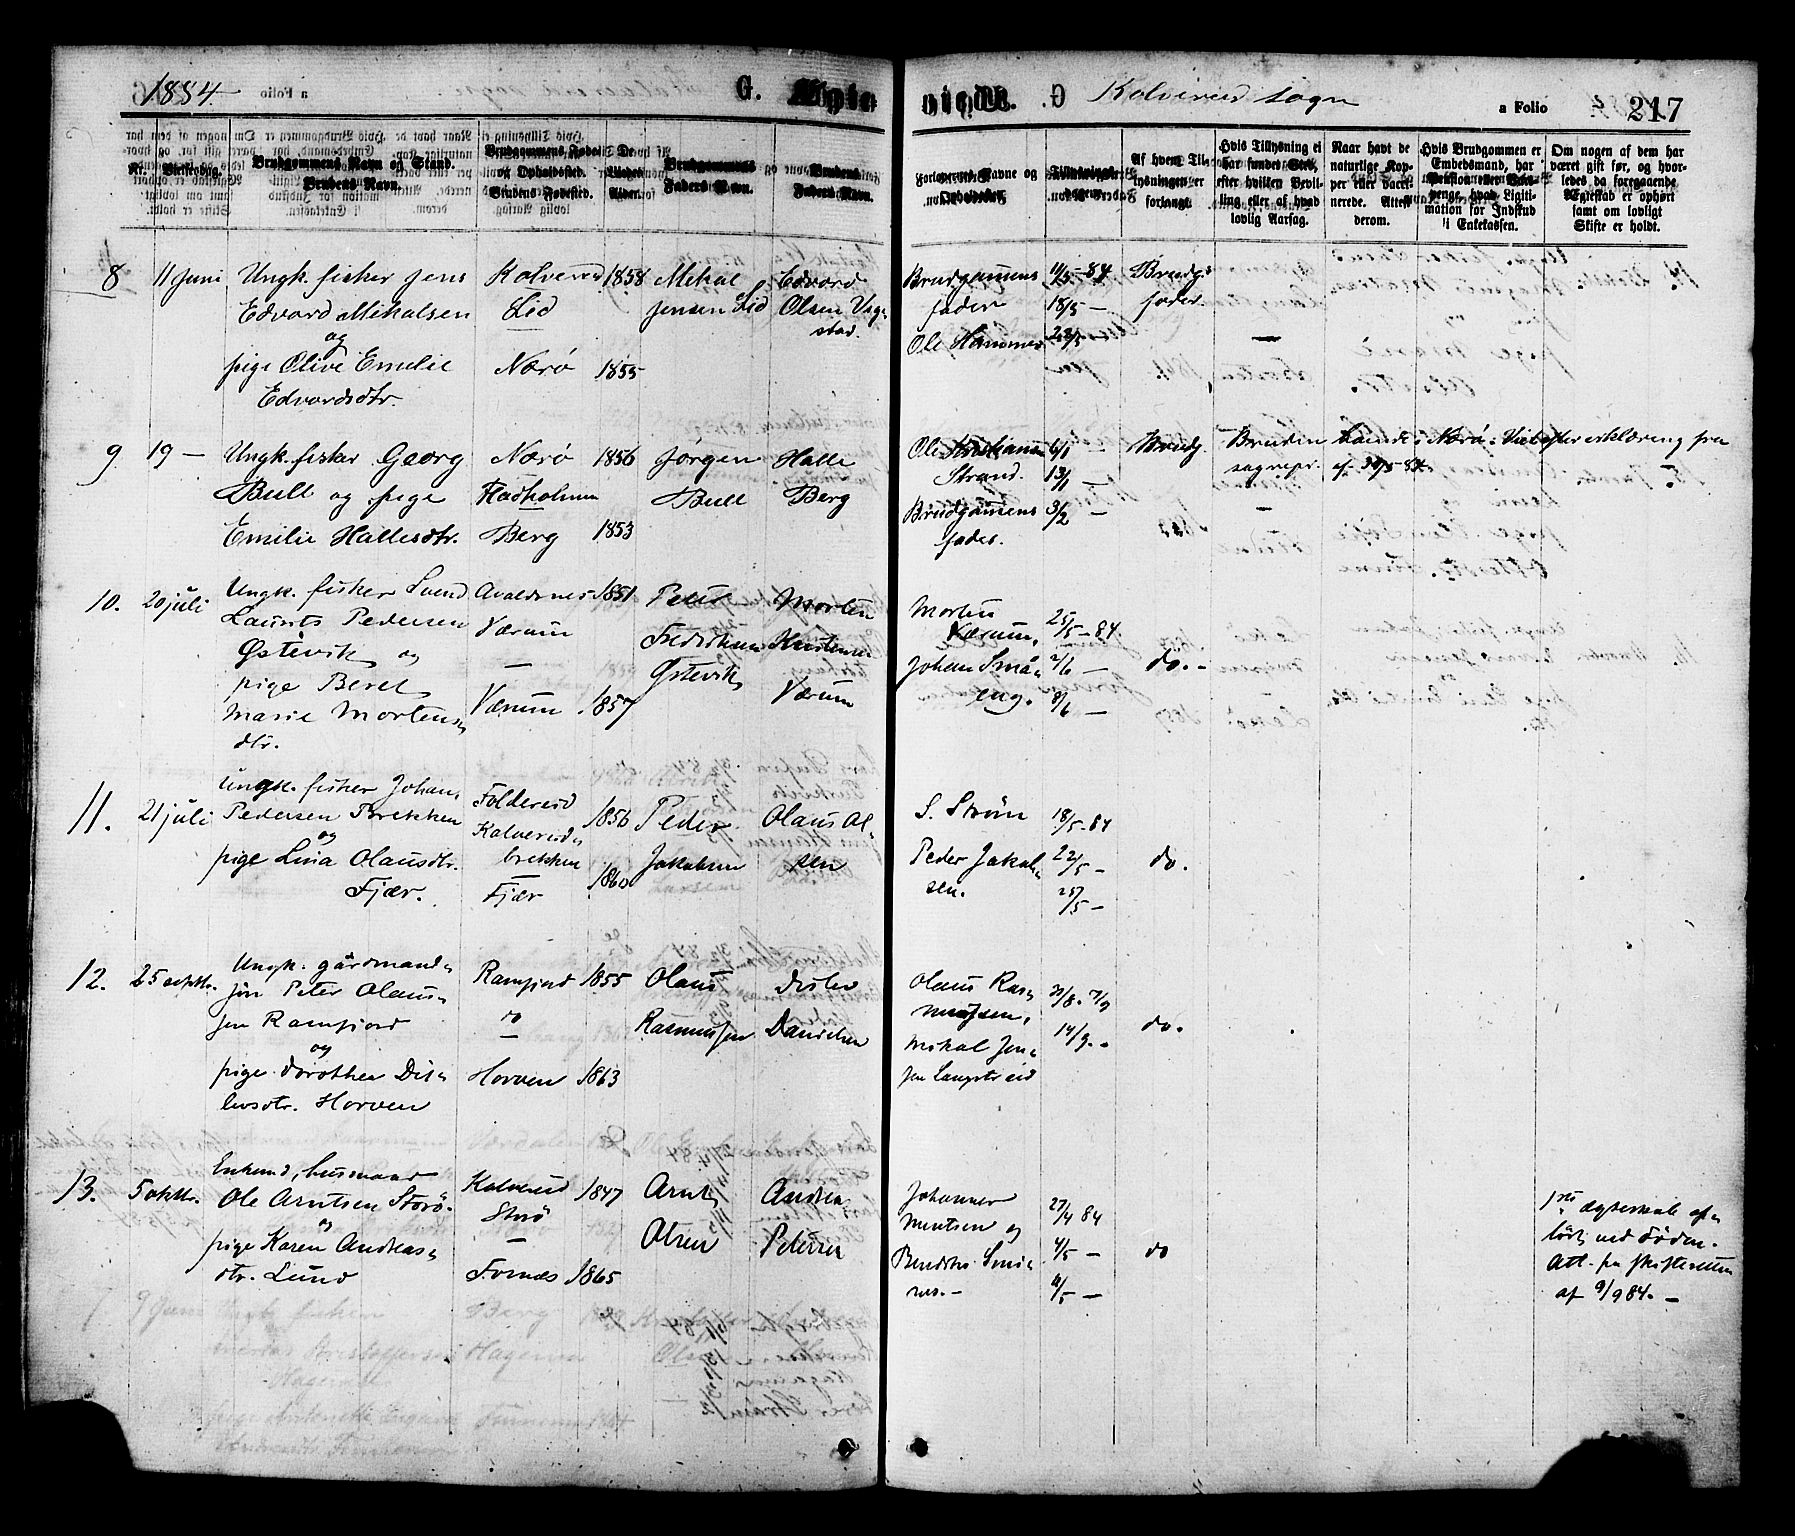 1884.
G.
Kolvereid sogn
a Folio 217
Nr.
Vielsesdag.
Brudgommens Navn og Stand.
Brudens Navn.
Brudgommens Fødested
og Opholdssted.
Brudens Fødested.
De
Viedes
Alder.
Brudgommens
Faders Navn.
Brudens
Faders Navn.
Forlovernes Navne og
Opholdssted.
Af hvem Til-
lysningen er
forlangt.
Hvis Tillysning ei
har fundet Sted,
efter hvilken Bevil-
ling eller af hvad
lovlig Aarsag.
Naar havt de
naturlige Kop-
per eller vacci-
nerede. Attest
derom.
Hvis Brudgommen er
Embedsmand, har
Pension eller Ven-
penge, hvad Legiti-
mation for Indskud
i Enkekassen.
Om nogen af dem har
været gift før, og hvor-
ledes da foregaaende
Ægtestab er ophørt
samt om lovligt
Skifte er holdt.
8 11 Juni Ungk. fisker Jens
Edvard Mikalsen
og
pige Olive Emilie
Edvardsdtr.
Kolvereid
Lid
Nærø
1858
1855
Mikal
Jensen Lid
Edvard
Olsen Vag-
stad.
Brudgommens
fader
Ole Hammer
11/5-84
18/5 —
Brudg.
fader.
9 19 — Ungk. fisker Georg
Bull og pige
Emilie Hallesdtr.
Nærø
Berg
1856
1853
Jørgen
Bull
Halle
Berg
Ole Kristiansen
Strand.
Brudgommens
fader.
6/1 —
13/1 —
3/2 —
Brudg.
Bruden boende i Nærø. Viet efter erklæring fra
sognepr. af 30/5-84
10. 20 juli Ungk. fisker Svend
Laurits Pedersen
Østevik og
pige Beret
Marie Mortens-
dtr.
Avaldsnes
Værum
—
Værum
1851
1857
Peder
Østevik
Morten
Kristensen
Værum
Morten
Værum,
Johan Små-
eng.
25/5-84.
2/6 —
8/6 —
do. -
11. 21 juli Ungk. fisker Johan
Pedersen Brekken
og
pige Lina Olausdtr.
Fjær.
Foldereid
Kolvereid-
brekken
—
Fjær
1856
1860
Peder
Jakobsen
Olaus Ol-
sen
S. Strøm
Peder Jakob-
sen.
18/5-84
22/5 —
25/5 —
do.
12. 25 septbr. Ungk. gårdmand-
søn Peter Olaus-
sen Ramfjord
og
pige Dorothea Dit-
levsdtr. Horven
Ramfjord
do
—
Horven
1855
1863
Olaus
Rasmussen
Ditlev
Danielsen
Olaus Ras-
mussen,
Mikal Jen-
sen Langstrand
31/8. 7/9
14/9. -
do.
13. 5 oktbr. Enkemd, husmand
Ole Arntsen Storö
og
pige Karen Andreas-
dtr. Lund
Kolvereid
Storö
—
Fornes
1847
1865
Arnt
Olsen
Andreas
Petersen
Johannes
Mentsen og
27/4 84
4/5 —
11/5 —
do
1ste ægteskab op-
löst ved döden.
Att. fra skifteretten
af 9/9 84. —